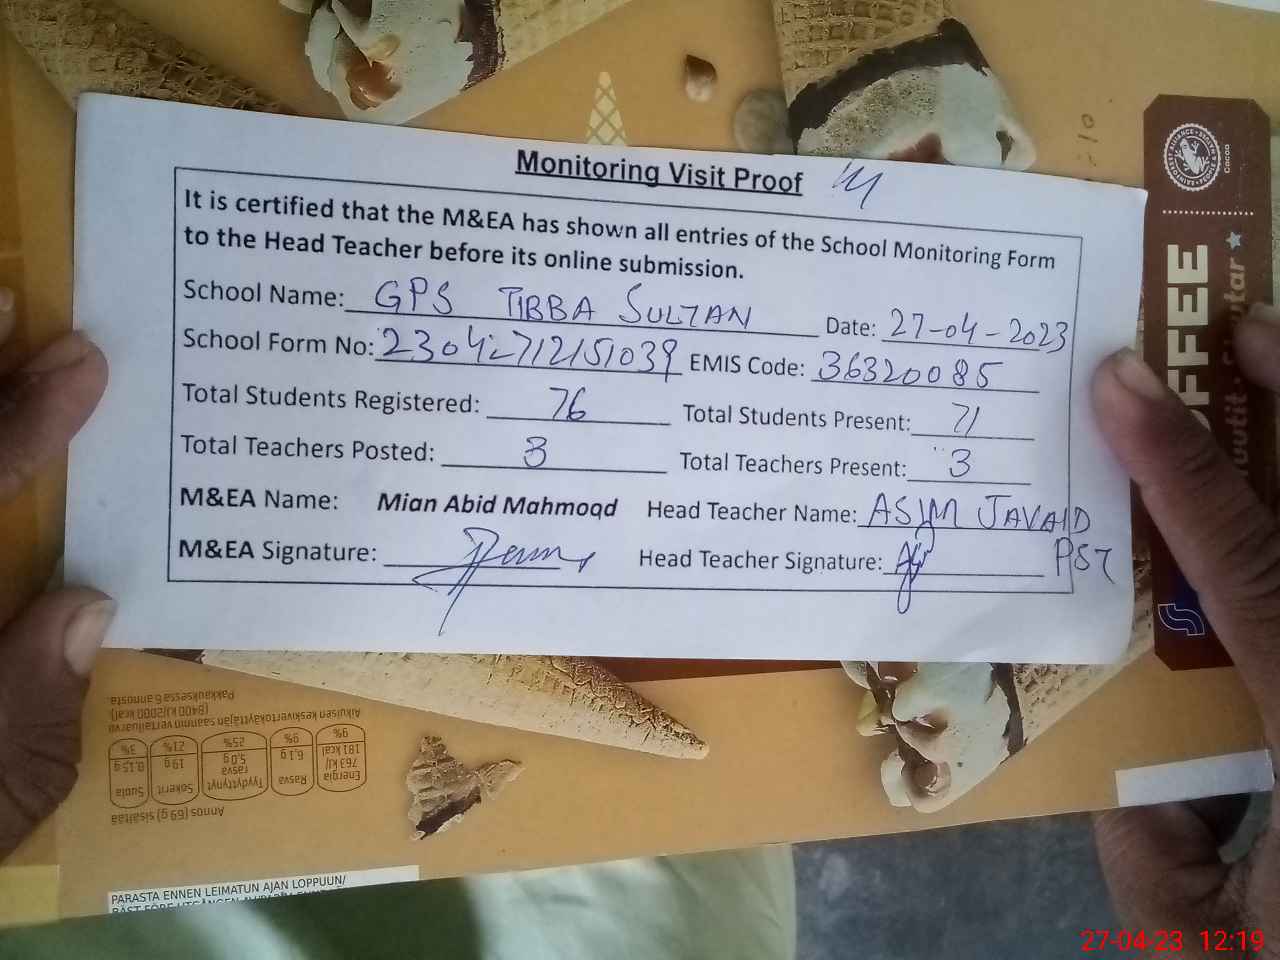 Monitoring Visit Proof
It is certified that the M&EA has shown all entries of the School Monitoring Form
to the Head Teacher before its online submission.
School Name: GPS TIBBA SULTAN Date: 27-04-2023
School Form No: 23042712151039 EMIS Code: 36320085
Total Students Registered: 76 Total Students Present: 71
Total Teachers Posted: 3 Total Teachers Present: 3
M&EA Name: Mian Abid Mahmood Head Teacher Name: ASIM JAVAID
M&EA Signature: Head Teacher Signature: PST
RAINFOREST ALLIANCE
PEOPLE & NATURE
Cocoa
FFEE
Annos (69 g) sisältää
Energia 763 kJ/ 181 kcal 9%
Rasva 6,1 g 9%
Tyydyttynyt rasva 5,0 g 25%
Sokerit 19 g 21%
Suola 0,15 g 3%
Aikuisen keskivertokäyttäjän saannin vertailuarvo
(8400 kJ/2000 kcal)
Pakkauksessa 6 annosta.
PARASTA ENNEN LEIMATUN AJAN LOPPUUN/
27-04-23 12:19